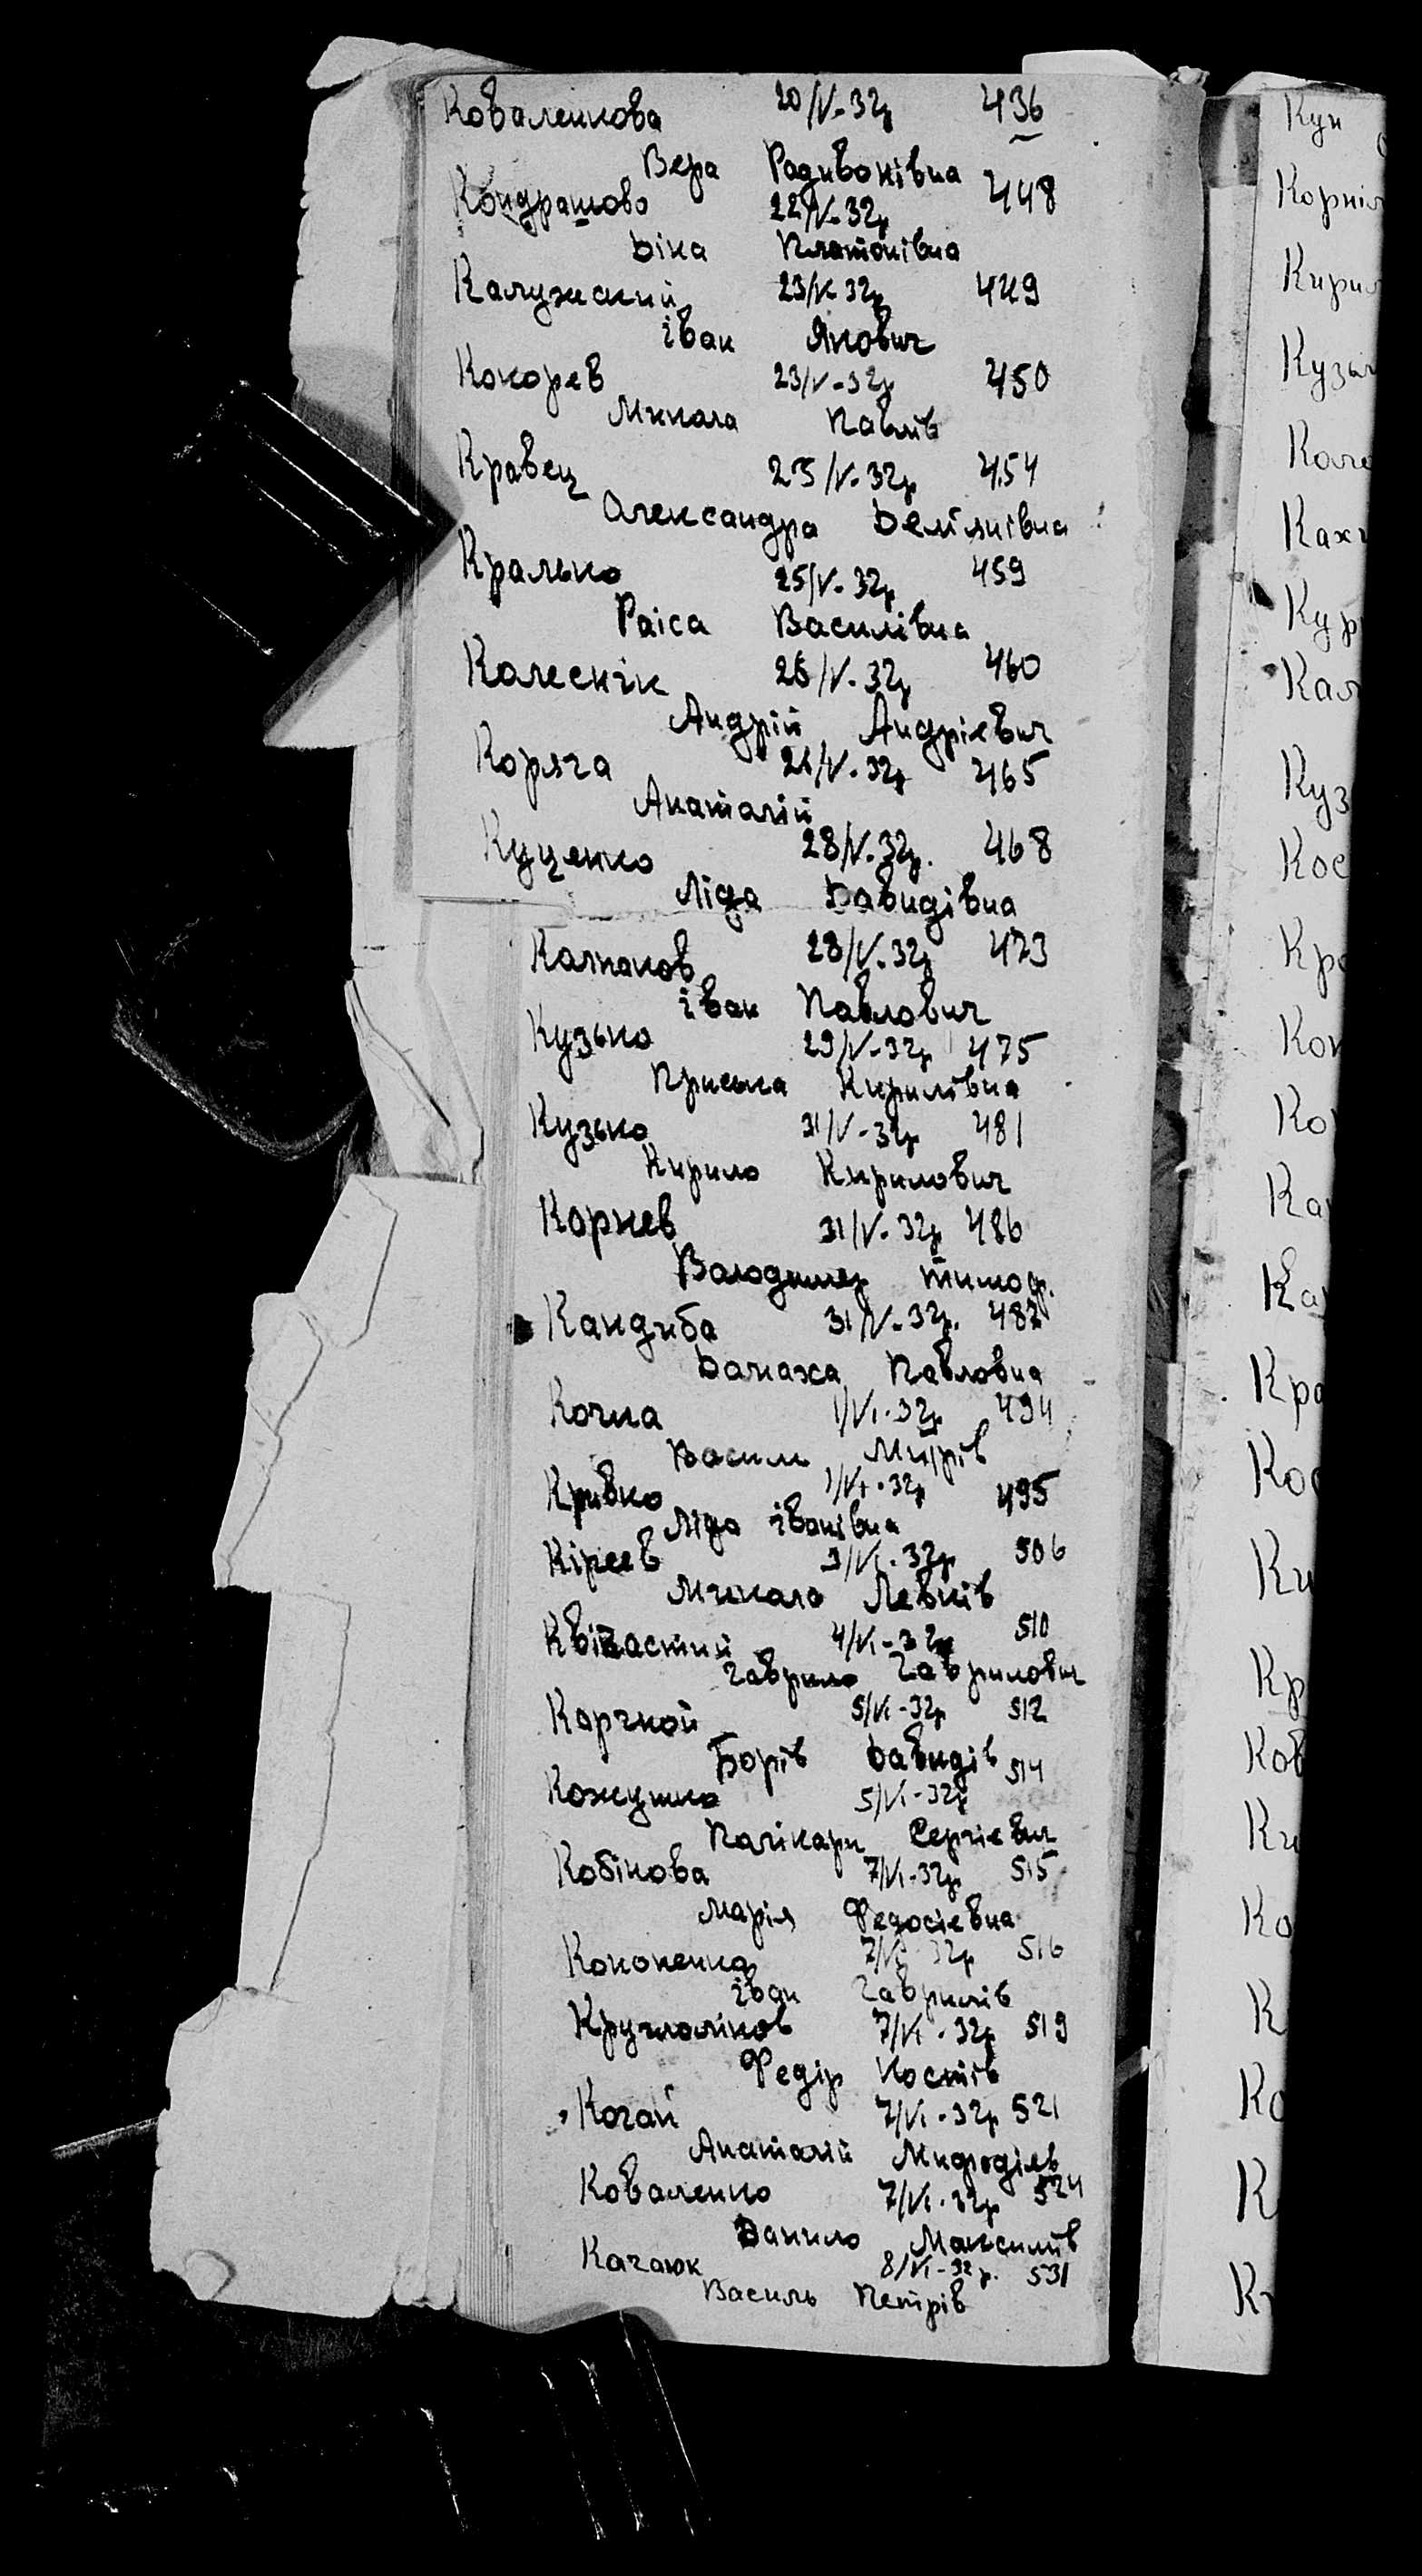 Коваленкова 20/V-32р 436
Вера Радивонівна
Кондрашово 22/V-32р 448
Діна Платонівна
Калужский 23/V-32р 449
Іван Якович
Кокорев 23/V-32р 450
Микола Павлів
Кравец 25/V-32р 454
Олександра
Кралько 25/V-32р 459
Раіса Василівна
Калеснік 26/V-32р 460
Андрій Андріевич
Коряга 26/V-32р 465
Анаталій
Куценко 28/V-32р. 468
Ліда Давидівна
Калпаков 28/V-32р 473
Іван Павлович
Кузько 29/V-32р 475
Приська Кирилівна
Кузько 31/V-32р 481
Кирило Кирилович
Корнев 31/V-32р 486
Володимер Тимоф.
Кандиба 31/V-32р. 487
Павловна
Кочка 1/VI-32р 494
Василь
Кривко 1/VI-32р 495
Ліда Іванівна
Кіреев 3/VI-32р 506
Микола Левків
4/VI-32р 510
Гаврило Гаврилович
Корчной 5/VI-32р 512
Борів Давидів
Кожушко 5/VI-32р 514
Палікарп Сергіевич
Кобікова 7/VI-32р 515
Марія Федосіевна
Кононенко 7/VI-32р 516
Іван Гаврилів
Круглоліков 7/VI-32р 519
Федір Костів
Коган 7/VI-32р 521
Анаталій
Коваленко 7/VI-32р 524
Данило Максимів
Качаюк 8/VI-32р. 531
Василь Петрів
Кун
Корніл
Кири
Кузь
Кал
Кур
Кал
Куз
Кос
Кр
Ко
Ка
Ка
Кра
Кос
Ки
Кр
Ков
Ки
Ко
К
Ко
К
К